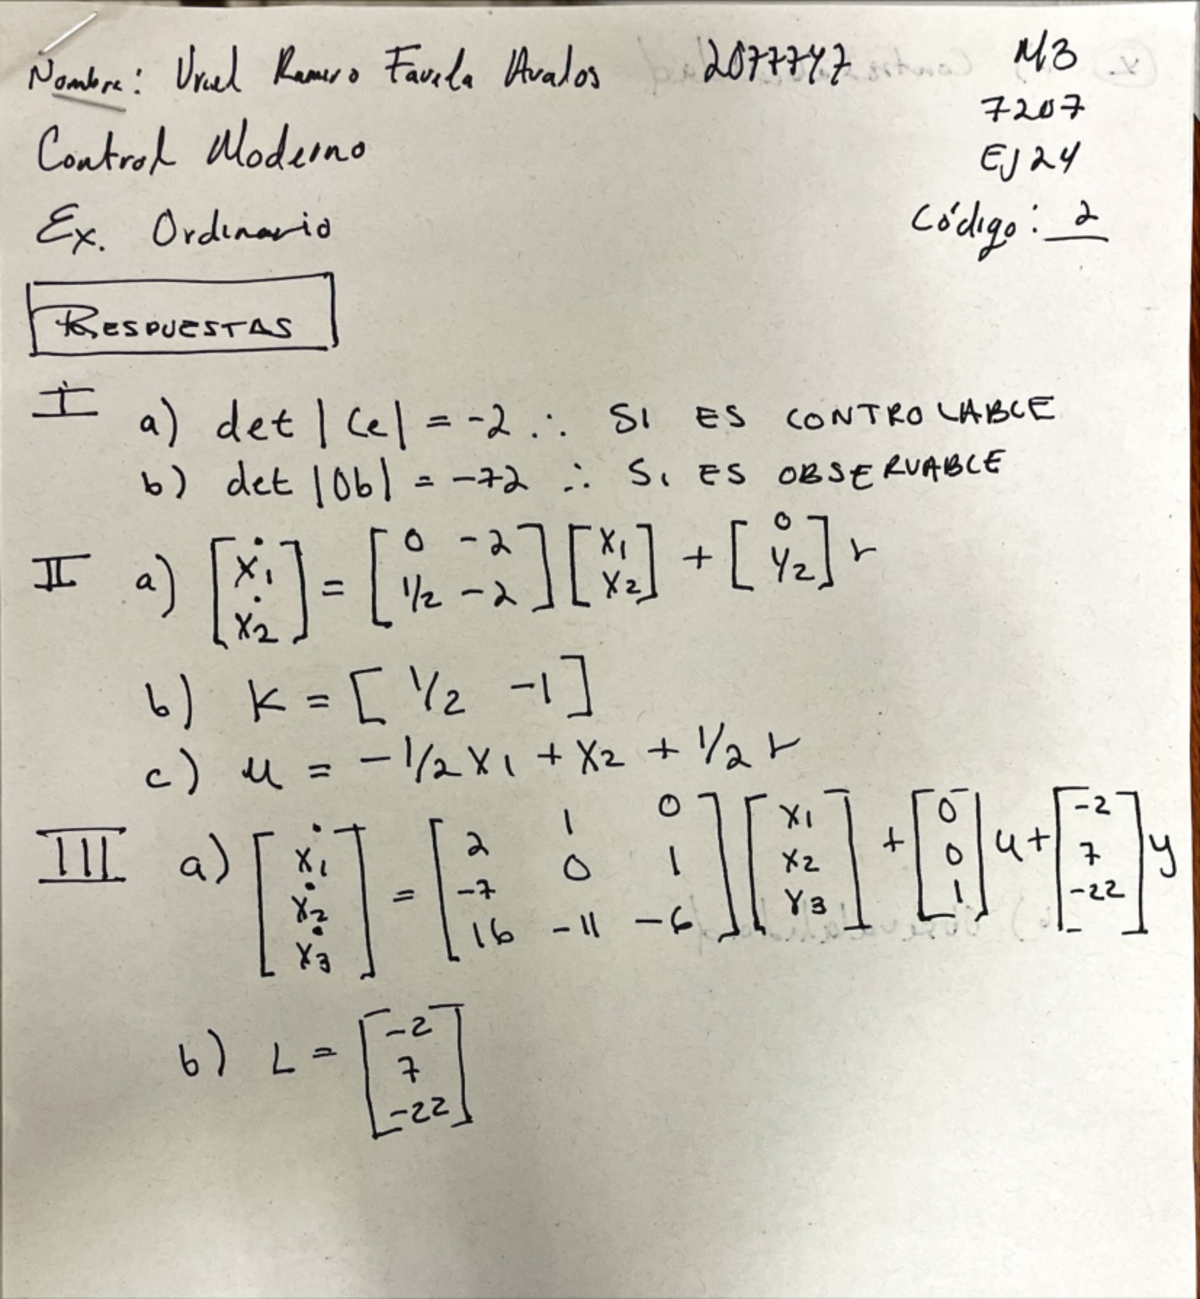 Nombre: Uriel Ramiro Favela Avalos 2077747 M3
7207
Control Moderno EJ24
Ex. Ordinario Código: 2
RESPUESTAS
I a) det |Ce| = -2 ∴ SI ES CONTROLABLE
b) det |Ob| = -72 ∴ Si ES OBSERVABLE
II a) [ẋ1; ẋ2] = [0 -2; 1/2 -2] [x1; x2] + [0; 1/2] r
b) K = [ 1/2 -1 ]
c) u = -1/2 x1 + x2 + 1/2 r
III a) [ẋ1; ẋ2; ẋ3] = [2 1 0; -7 0 1; 16 -11 -6] [x1; x2; x3] + [0; 0; 1] u + [-2; 7; -22] y
b) L = [-2; 7; -22]